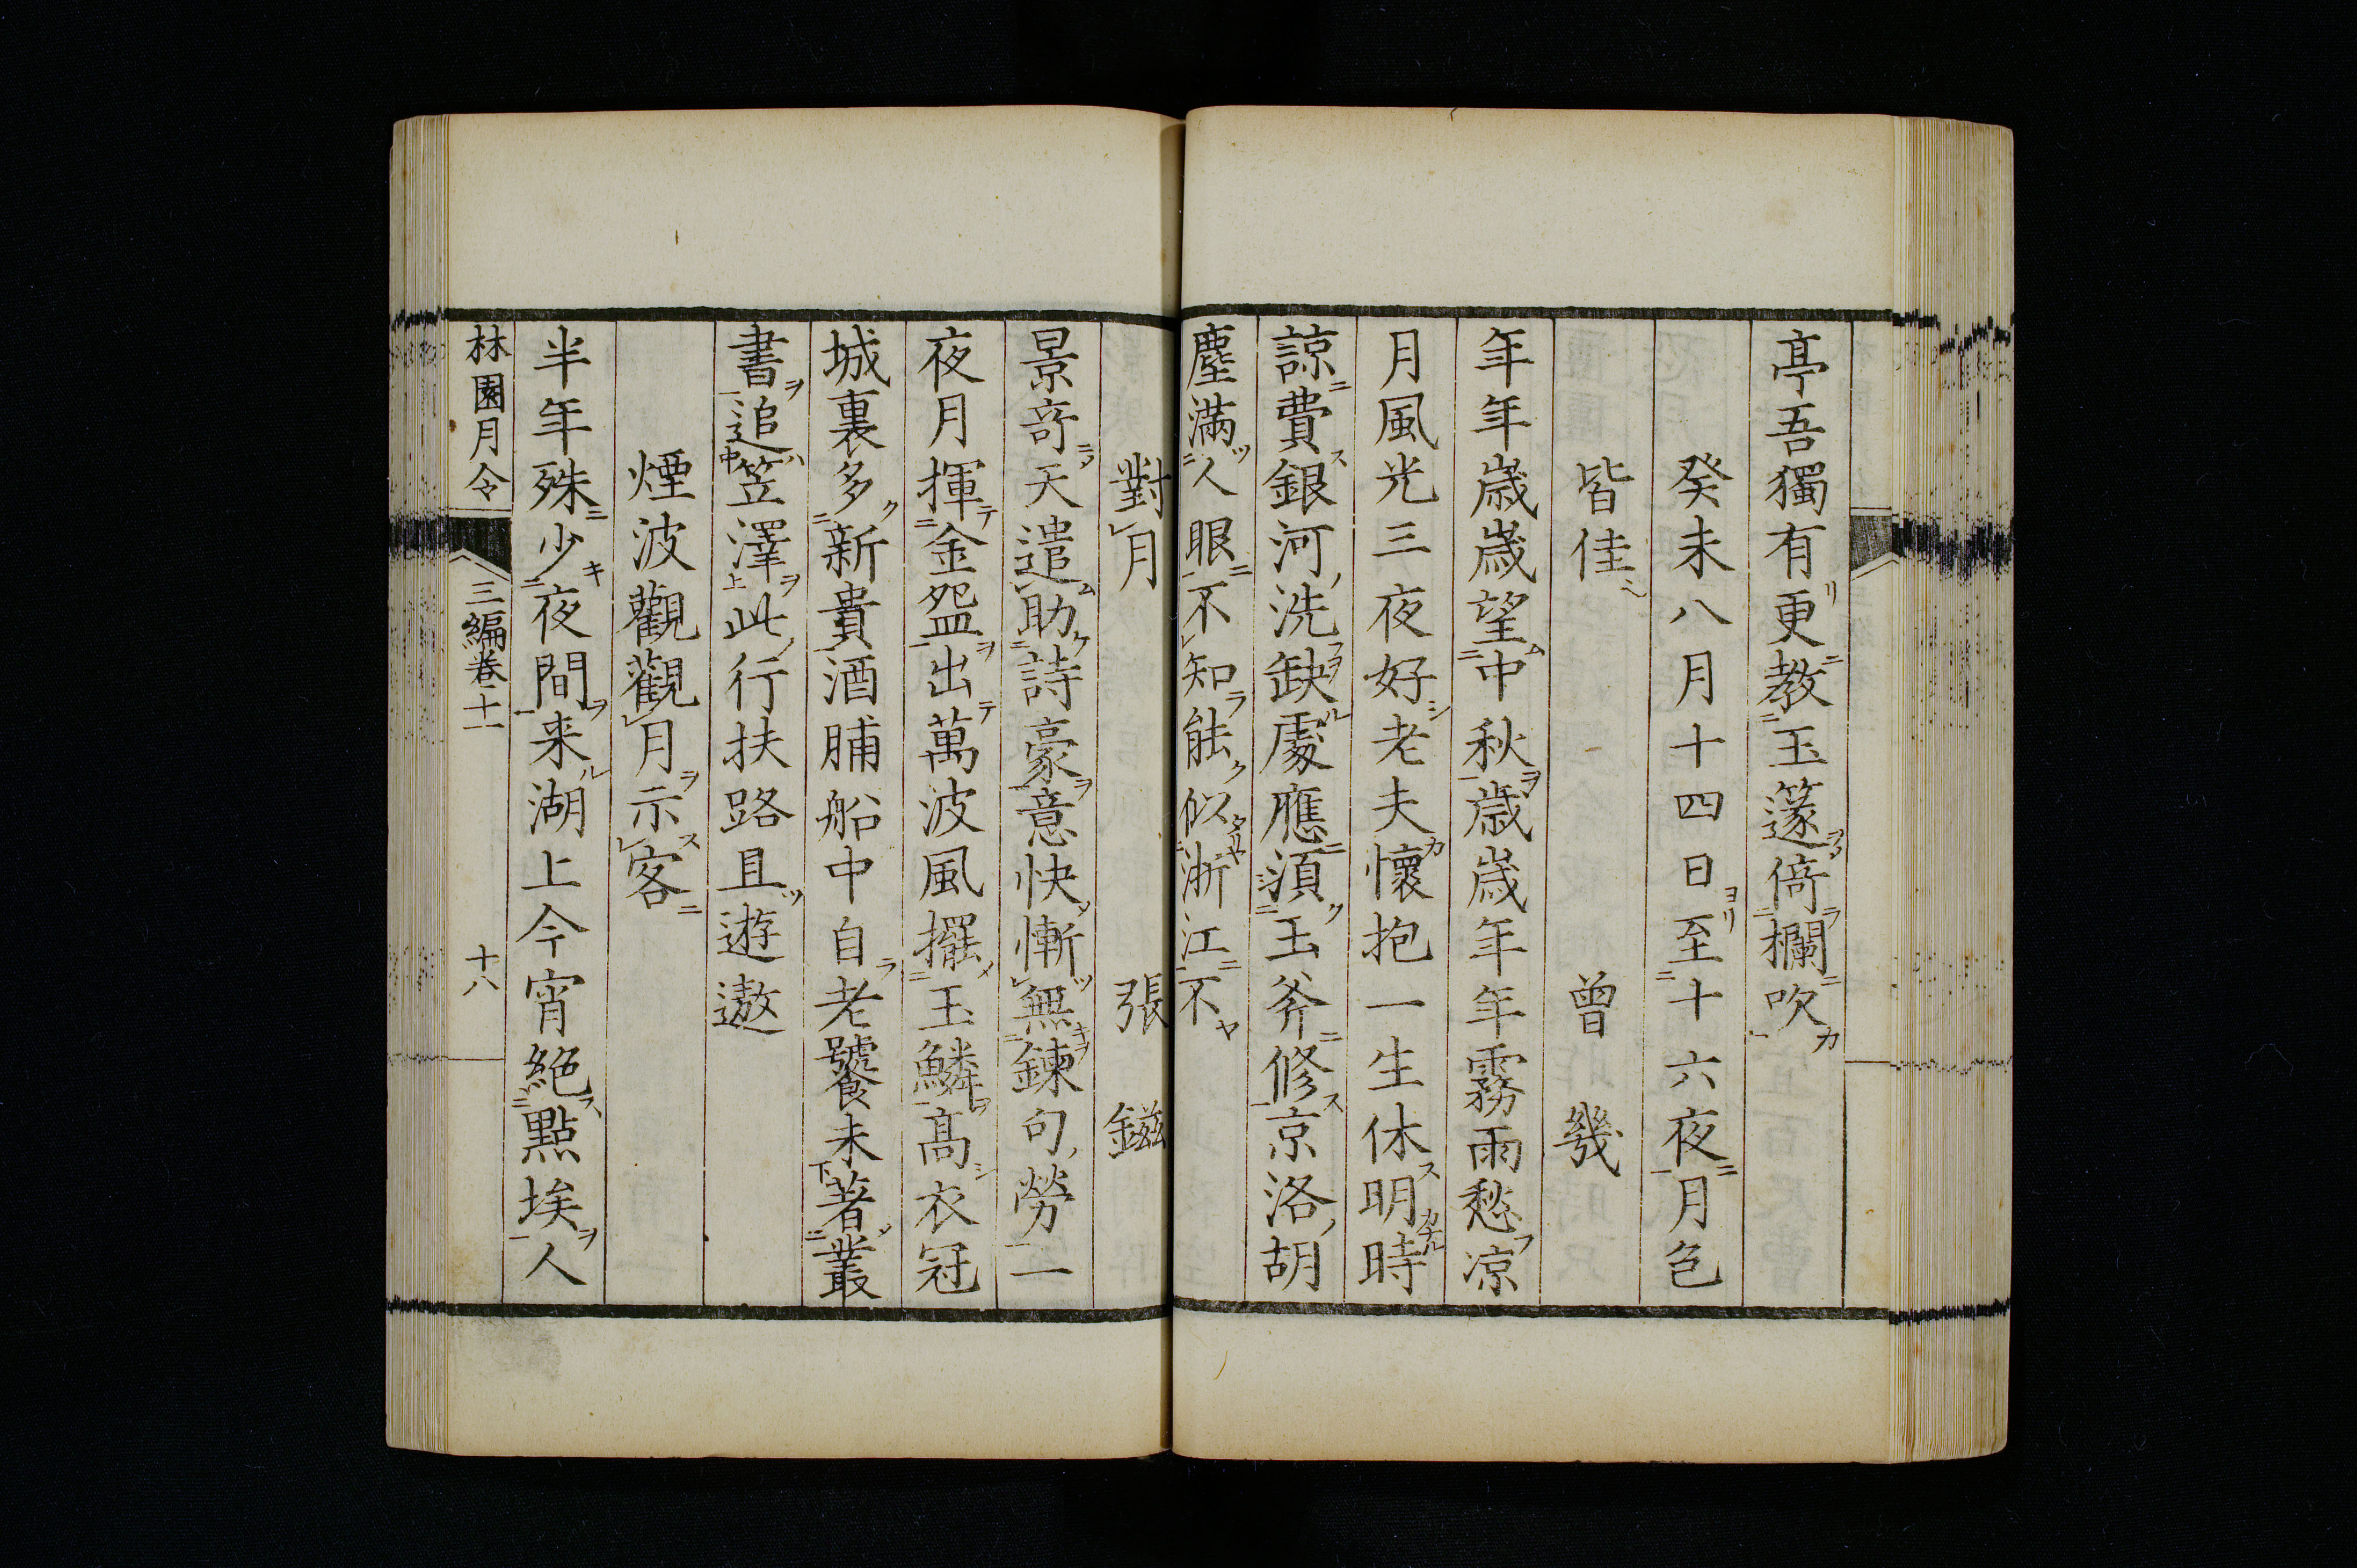 亭吾獨有更教玉篴倚欄吹
癸未八月十四日至十六夜月色
皆佳　曾幾
年年歳歳望中秋歳歳年年霧雨愁凉
月風光三夜好老夫懷抱一生休明時
諒費銀河洗缺處應須玉斧修京洛胡
塵滿人眼不知能似浙江不
對月　張鎡
景竒天遣助詩豪意快慚無鍊句勞一
夜月揮金盌出萬波風擺玉鱗髙衣冠
城裏多新貴酒脯船中自老饕未著叢
書追笠澤此行扶路且遊遨
煙波觀觀月示客
半年殊少夜間来湖上今宵絶點埃人
林園月令　三編卷十一　十八